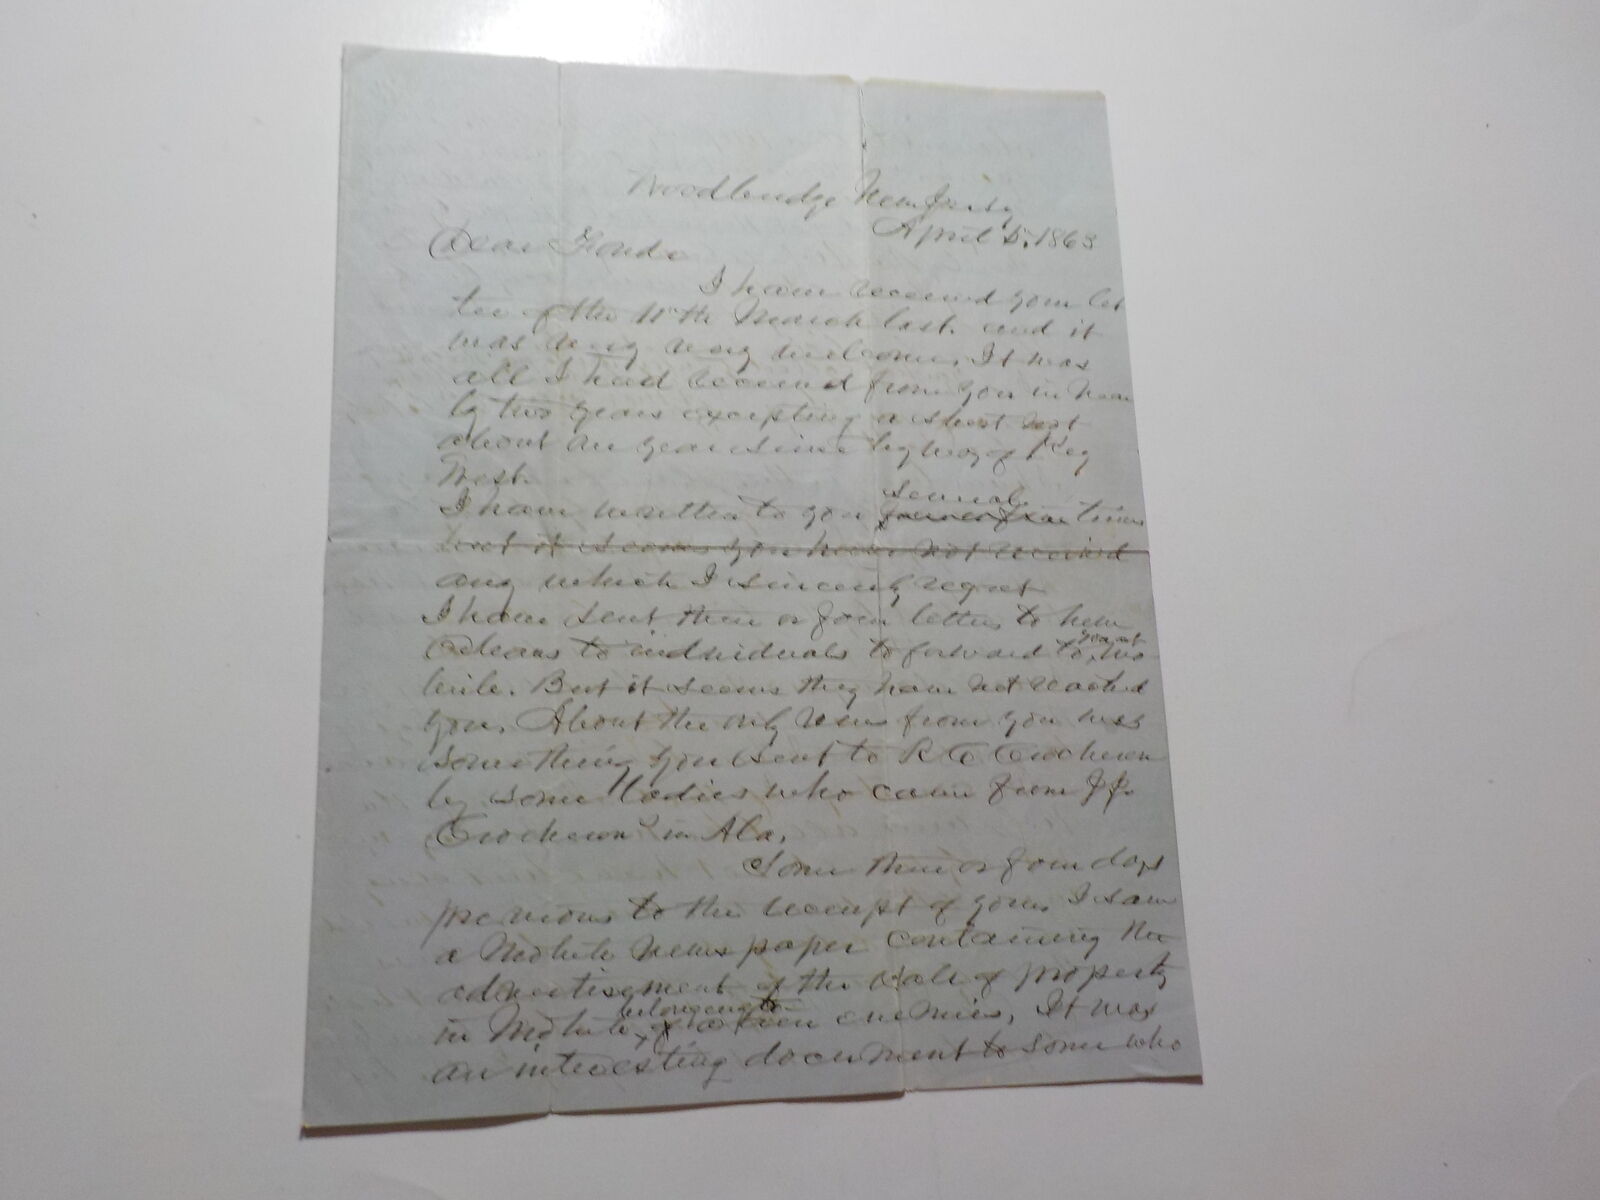 Woodbridge New Jersey
April 5, 1863
Dear Friends
I have received your let
ter of the 11th March last. and it
was very very welcome, It was
all I had received from you in near
ly two years excepting a short not
about an year since by way of Key
West.
I have written to you several times
but it seems you have not received
any which I sincerely regret
I have sent three or four letters to New
Orleans to individuals to forward to you at Mo
bile. But it seems they have not reached
you, About the only news from you was
something you sent to R C Crocheron
by some ladies who came from J J.
Crocheron's in Ala,
Some three or four days
previous to the receipt of yours I saw
a Mobile News paper containing the
advertisement of the sale of property
in Mobile, belonging to alien enemies, It was
an interesting document to some who